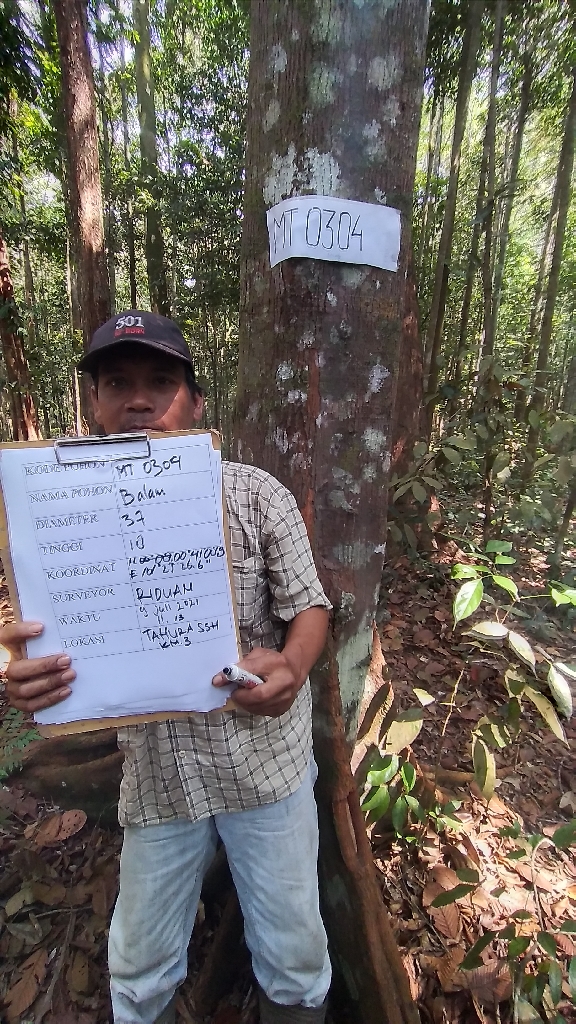 MT 0304
501
KODE POHON MT 0304
NAMA POHON Balam
DIAMETER 37
TINGGI 10
KOORDINAT
SURVEYOR RIDUAN
WAKTU 9 Juli 2021
11 13
LOKASI TAHURA SSH
KM 3